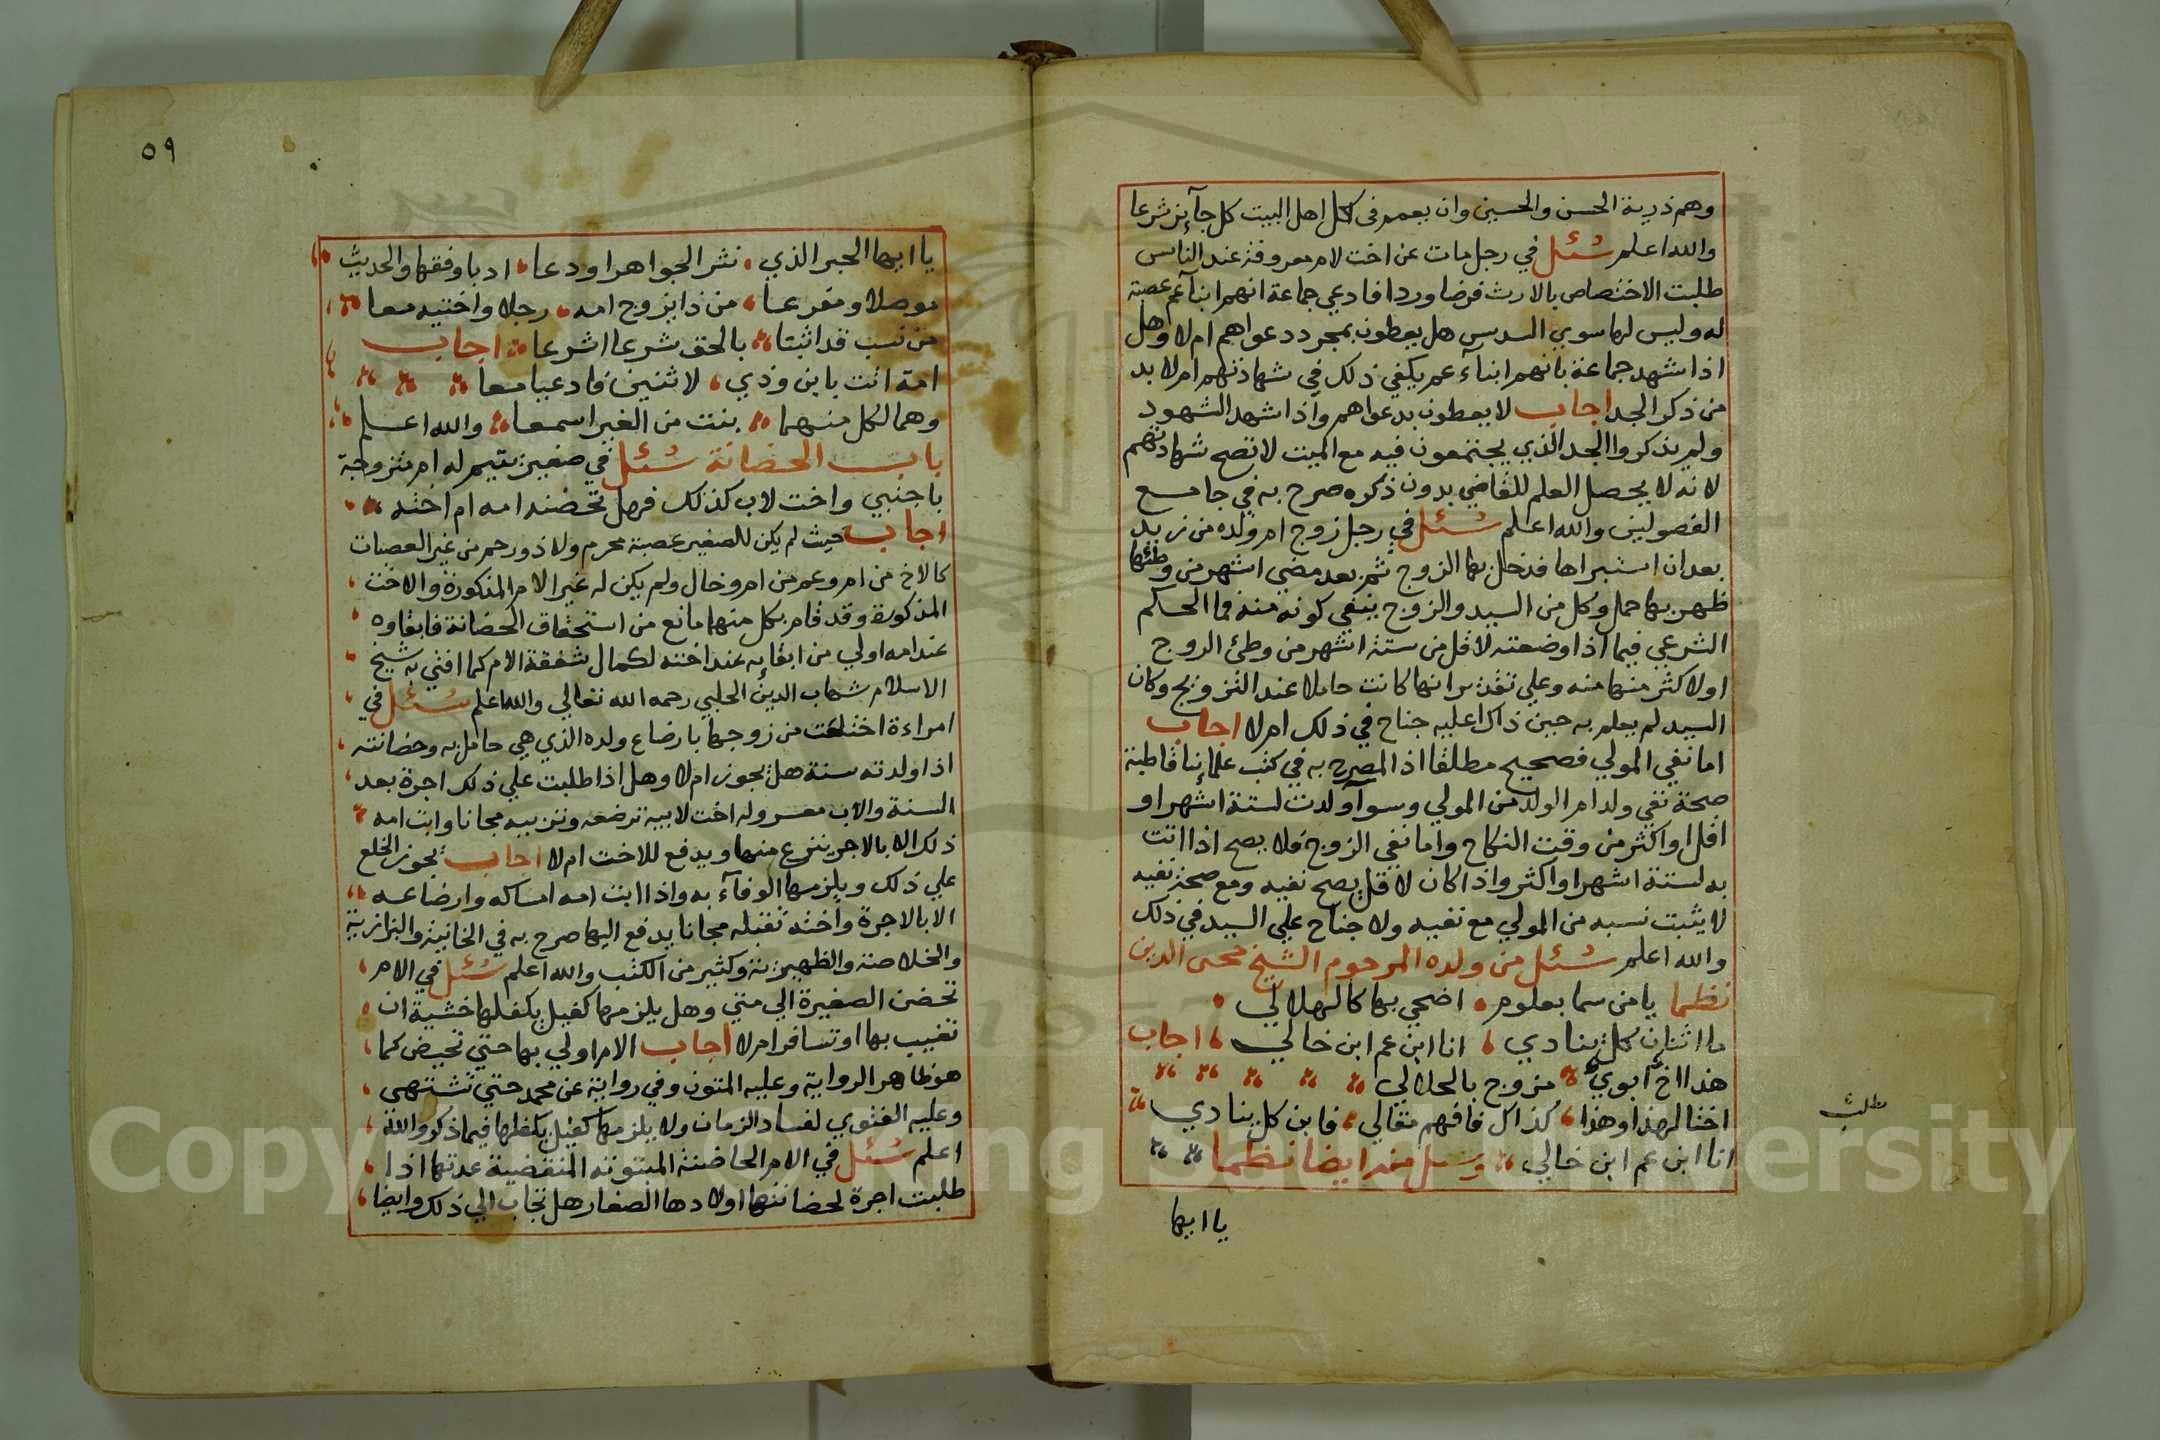 وهم ذرية الحسن والحسين وان يعمم في كل اهل البيت كل جآيز شرعا
والله اعلم سئل في رجل مات عن اخت لام معروفة عند الناس
طلبت الاختصاص بالارث فرضا وردا فادعي جماعة انهم ابنآعم عصبة
له وليس لها سوي السدس هل يعطون بمجرد دعواهم ام لا وهل
اذا شهد جماعة بانهم ابنآء عم يكفي ذلك في شهادتهم ام لا بد
من ذكر الجد اجاب لا يعطون بدعواهم واذا شهد الشهود
ولم يذكروا الجد الذي يجتمعون فيه مع الميت لا تصح شهادتهم
لانه لا يحصل العلم للقاضي بدون ذكره صرح به في جامع
الفصولين والله اعلم سئل في رجل زوج ام ولده من زيد
بعد ان استبراها فدخل بها الزوج ثم بعد مضي اشهر من وطئها
ظهر بها حمل وكل من السيد والزوج ينفي كونه منه فما الحكم
الشرعي فيما اذا وضعته لاقل من ستة اشهر من وطئ الزوج
او لاكثر منها منه وعلي تقدير انها كانت حاملا عند التزويج وكان
السيد لم يعلم به حين ذاك اعليه جناح في ذلك ام لا اجاب
اما نفي المولي فصحيح مطلقا اذ المصرح به في كتب علمإنا قاطبة
صحة نفي ولد ام الولد من المولي وسوآ ولدت لستة اشهر او
اقل او اكثر من وقت النكاح واما نفي الزوج فلا يصح اذا اتت
به لستة اشهر او اكثر واذا كان لاقل يصح نفيه ومع صحة نفيه
لا يثبت نسبه من المولي مع نفيه ولا جناح علي السيد في ذلك
والله اعلم سئل من ولده المرحوم الشيخ محى الدين
نظما يا من سما بعلوم اضحي بها كالهلالي
ما اثنان كل ينادي انا ابن عم ابن خالي اجاب
هذا اخ ابوي مزوج بالحلالي
اختا لهذا وهذا كذاك فافهم مقالي فابن كل ينادي
انا ابن عم ابن خالي وسئل منه ايضا نظما
يا ايها
مطلب
٥٩
يا ايها الحبر الذي نثر الجواهر اودعا ادبا وفقها والحديث
موصلا ومفرعا من ذا يزوج امه رجلا واختيه معا
من نسب قد اثبتا بالحق شرعا اشرعا اجاب
امة اتت باين وذي لاثنين فادعيا معا
وهما لكل منهما بنت من الغير اسمعا والله اعلم
باب الحضانة سئل في صغير يتيم له ام متزوجة
باجنبي واخت لاب كذلك فهل تحضنه امه ام اخته
اجاب حيث لم يكن للصغير عصبة محرم ولا ذو رحم من غير العصبات
كالاخ من ام وعم من ام وخال ولم يكن له غير الام المذكورة والاخت
المذكورة وقد قام بكل منهما مانع من استحقاق الحضانة فابقاوه
عند امه اولي من ابقايه عند اخته لكمال شفقة الام كما افتي به شيخ
الاسلام شهاب الدين الحلبي رحمه الله تعالي والله اعلم سئل في
امراءة اختلعت من زوجها بارضاع ولده الذي هي حامل به وحضانته
اذا ولدته سنة هل يجوز ام لا وهل اذا طلبت علي ذلك اجرة بعد
السنة والاب معسر وله اخت لابيه ترضعه وتربيه مجانا وابت امه
ذلك الا بالاجر ينزع منها ويدفع للاخت ام لا اجاب يجوز الخلع
علي ذلك ويلزمها الوفآء به واذا ابت امه امساكه وارضاعه
الا بالاجرة واخته تقبله مجانا يدفع اليها صرح به في الخانية والبزازية
والخلاصة والظهيرية وكثير من الكتب والله اعلم سئل في الام
تحضن الصغيرة الي متي وهل يلزمها كفيل يكفلها خشية ان
تغيب بها او تسافر ام لا اجاب الام اولي بها حتي تحيض كما
هو ظاهر الرواية وعليه المتون وفي رواية عن محمد حتي تشتهى
وعليه الفتوي لفساد الزمان ولا يلزمها كفيل يكفلها فيما ذكر والله
اعلم سئل في الام الحاضنة المبتوتة المنقضية عدتها اذا
طلبت اجرة لحضانتها اولادها الصغار هل تجاب الي ذلك وايضا
Copyright © King Saud University